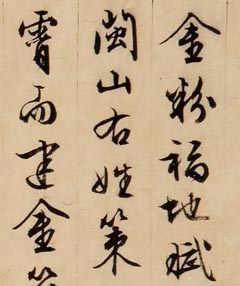 金粉福地賦
閩山右姓策
霄而建金